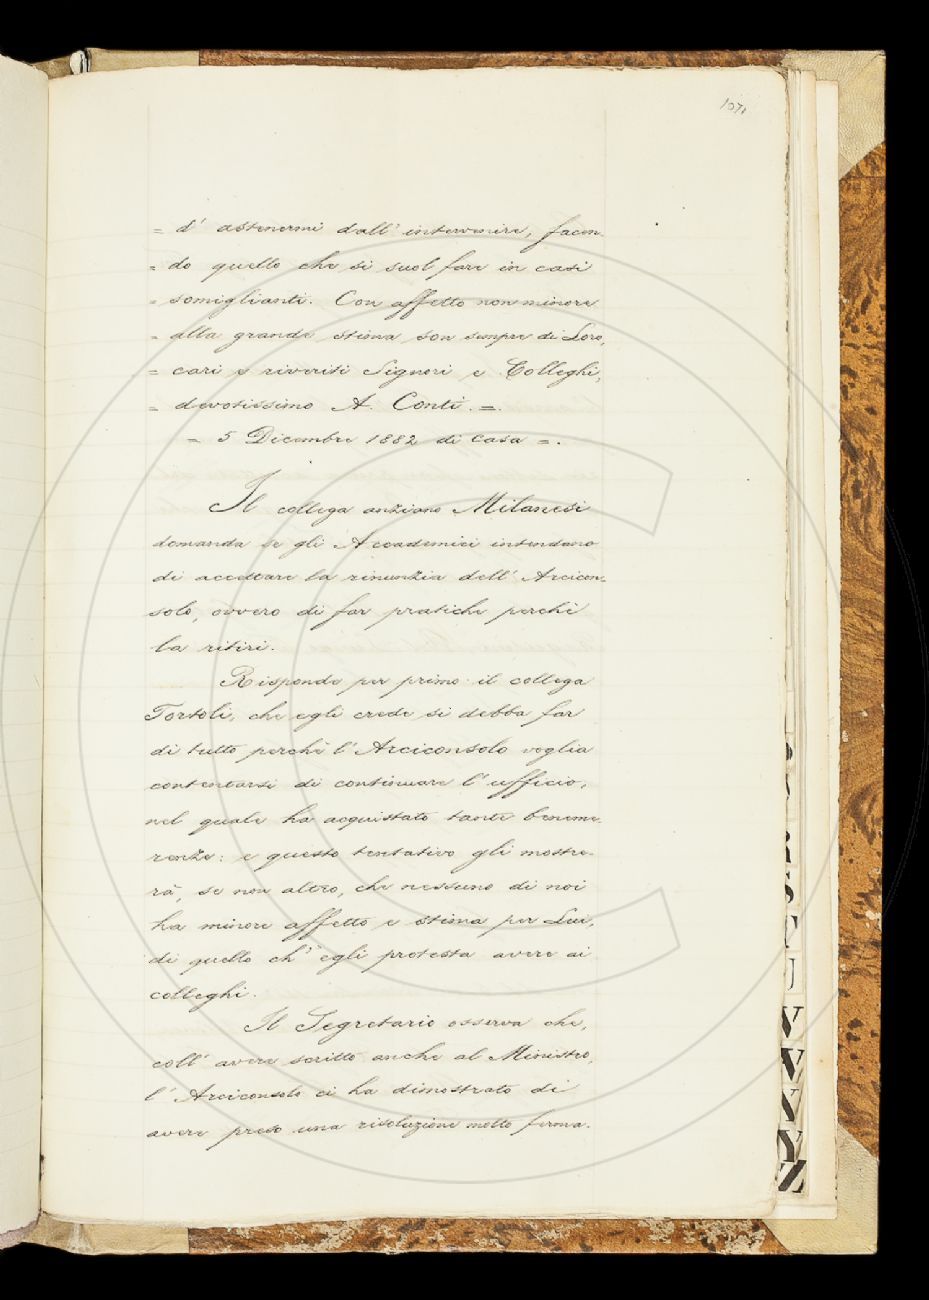 107.
= d' astenermi dall' intervenire, facen-
= do quello che si suol fare in casi
= somiglianti. Con affetto non minore
= alla grande stima son sempre di Loro,
= cari e riveriti Signori e Colleghi,
= devotissimo A. Conti. =.
= 5 Dicembre 1882 di casa =.
Il collega anziano Milanesi
domanda se gli Accademici intendano
di accettare la rinunzia dell' Arcicon-
solo, ovvero di far pratiche perchè
la ritiri.
Risponde per primo il collega
Tortoli, che egli crede si debba far
di tutto perchè l' Arciconsolo voglia
contentarsi di continuare l' ufficio,
nel quale ha acquistato tante beneme-
renze: e questo tentativo gli mostre-
rà, se non altro, che nessuno di noi
ha minore affetto e stima per Lui,
di quello ch' egli protesta avere ai
colleghi.
Il Segretario osserva che,
coll' avere scritto anche al Ministro,
l' Arciconsolo ci ha dimostrato di
avere preso una risoluzione molto ferma.
R
S
T
U
V
W
X
Y
Z